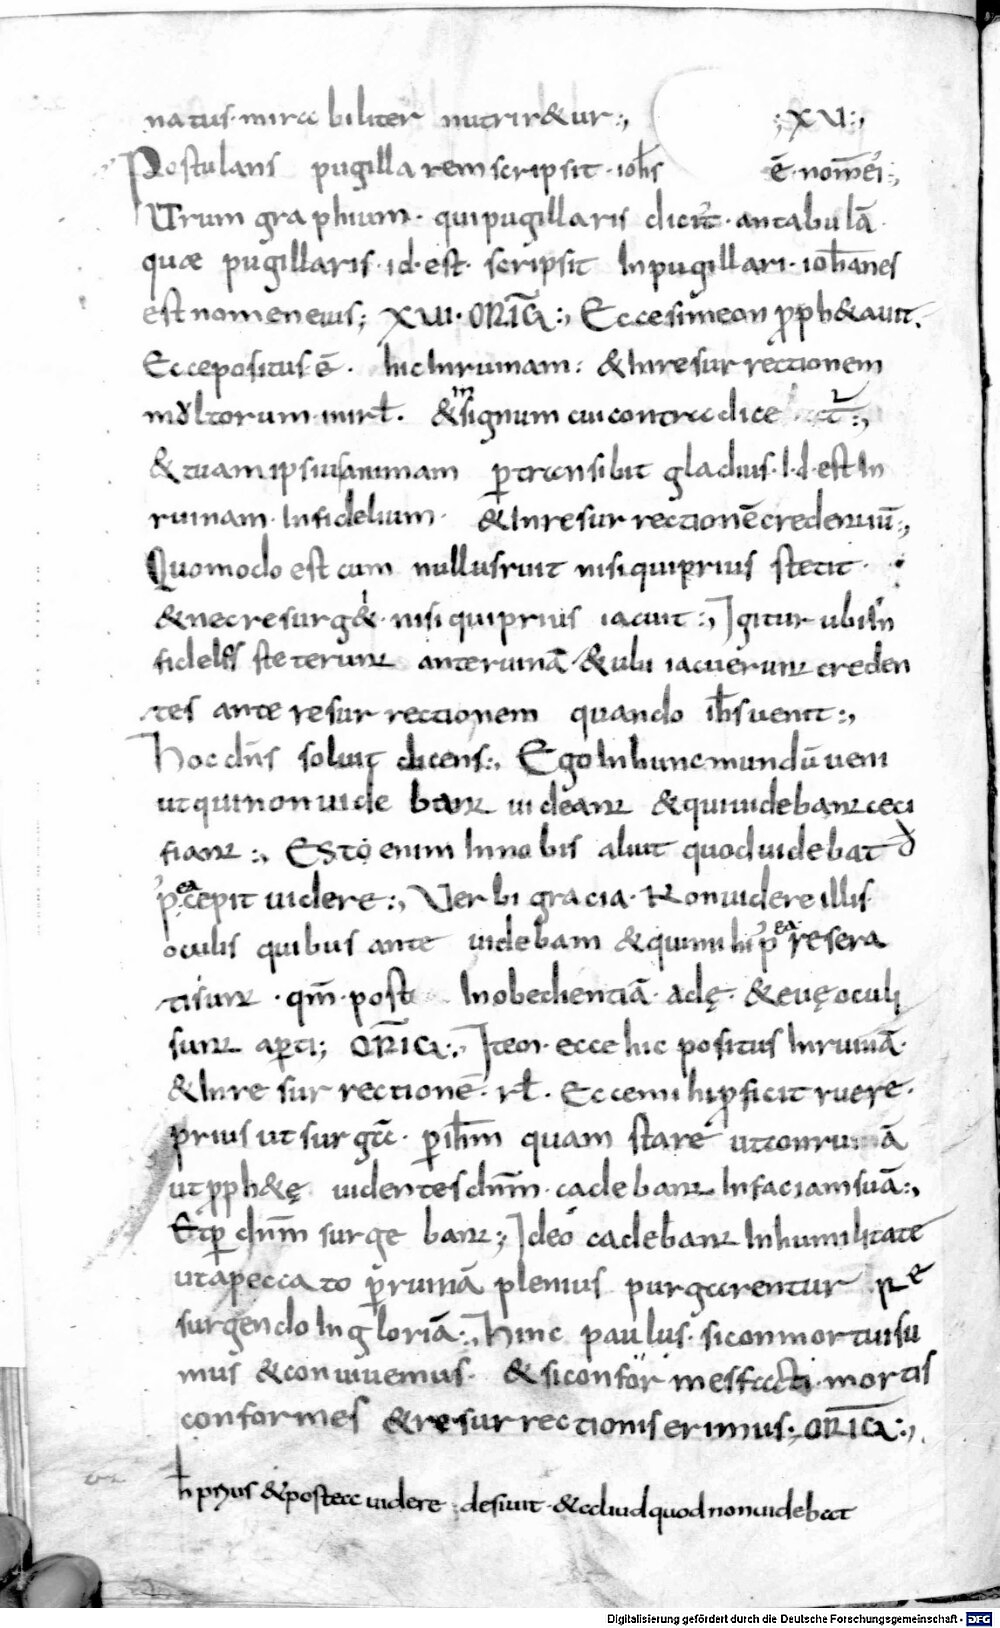 natus· mirabiliter nutrir&ur:, ;XV:,
Postulans pugillarem scripsit· ioh̅s ē· nom̅ ei:,
Utrum graphium· qui pugillaris dicit̅· an tabulā·
quæ pugillaris· id· est· scripsit In pugillari· ioh̅anes
est nomen eius; XVI· ORIG̅:, Ecce simeon p̅ph&auit·
Ecce positus ē· hic In ruinam: & In resurrectionem
multorum· in irl̅· & In signum cui contradice t̅:,
& tuam ipsius animam p̱transibit gladius· I·d· est In
ruinam· Infidelium· & In resurrectionē credentiū:,
Quomodo est cum nullus ruit nisi qui prius stetit·
& nec resurg&· nisi qui prius iacuit:, Igitur ubi In
fideles steterunt ante ruinā· & ubi iacuerunt creden
tes ante resurrectionem quando ih̅s uenit:,
Hoc dn̅s soluit dicens:, Ego In hunc mundū ueni
ut qui non uidebant uideant & qui uidebant ceci
fiant:, Est enim In nobis aliut quod uidebat
p ea cepit uidere:, Verbi gracia· Non uidere illis
oculis quibus ante uidebam & qui mihi p ea resera
ti sunt· qm̅· post Inobedientiā· adę· & euę oculi
sunt ap̱ti; ORIG̅:, Item· ecce hic positus In ruinā·
& In resurrectionē· rl̅· Ecce mihi p̱ficit ruere·
prius ut surgā· p̱ ih̅m quam stare ut conruam
ut p̱ph&ę uidentes dn̅m· cadebant In faciam suā:,
Et p̱ dn̅m surgebant:; Ideo cadebant In humilitate
ut a peccato p̱ ruinā plenius purgarentur Re
surgendo In gloriā:, Hinc paulus· si conmortui su
mus & conuiuemus· & si conformes facti· mortis
conformes & resurrectionis erimus:, ORIG̅:,
h prius & postea uidere· desiuit· & aliud quod non uidebat
Digitalisierung gefördert durch die Deutsche Forschungsgemeinschaft - DFG